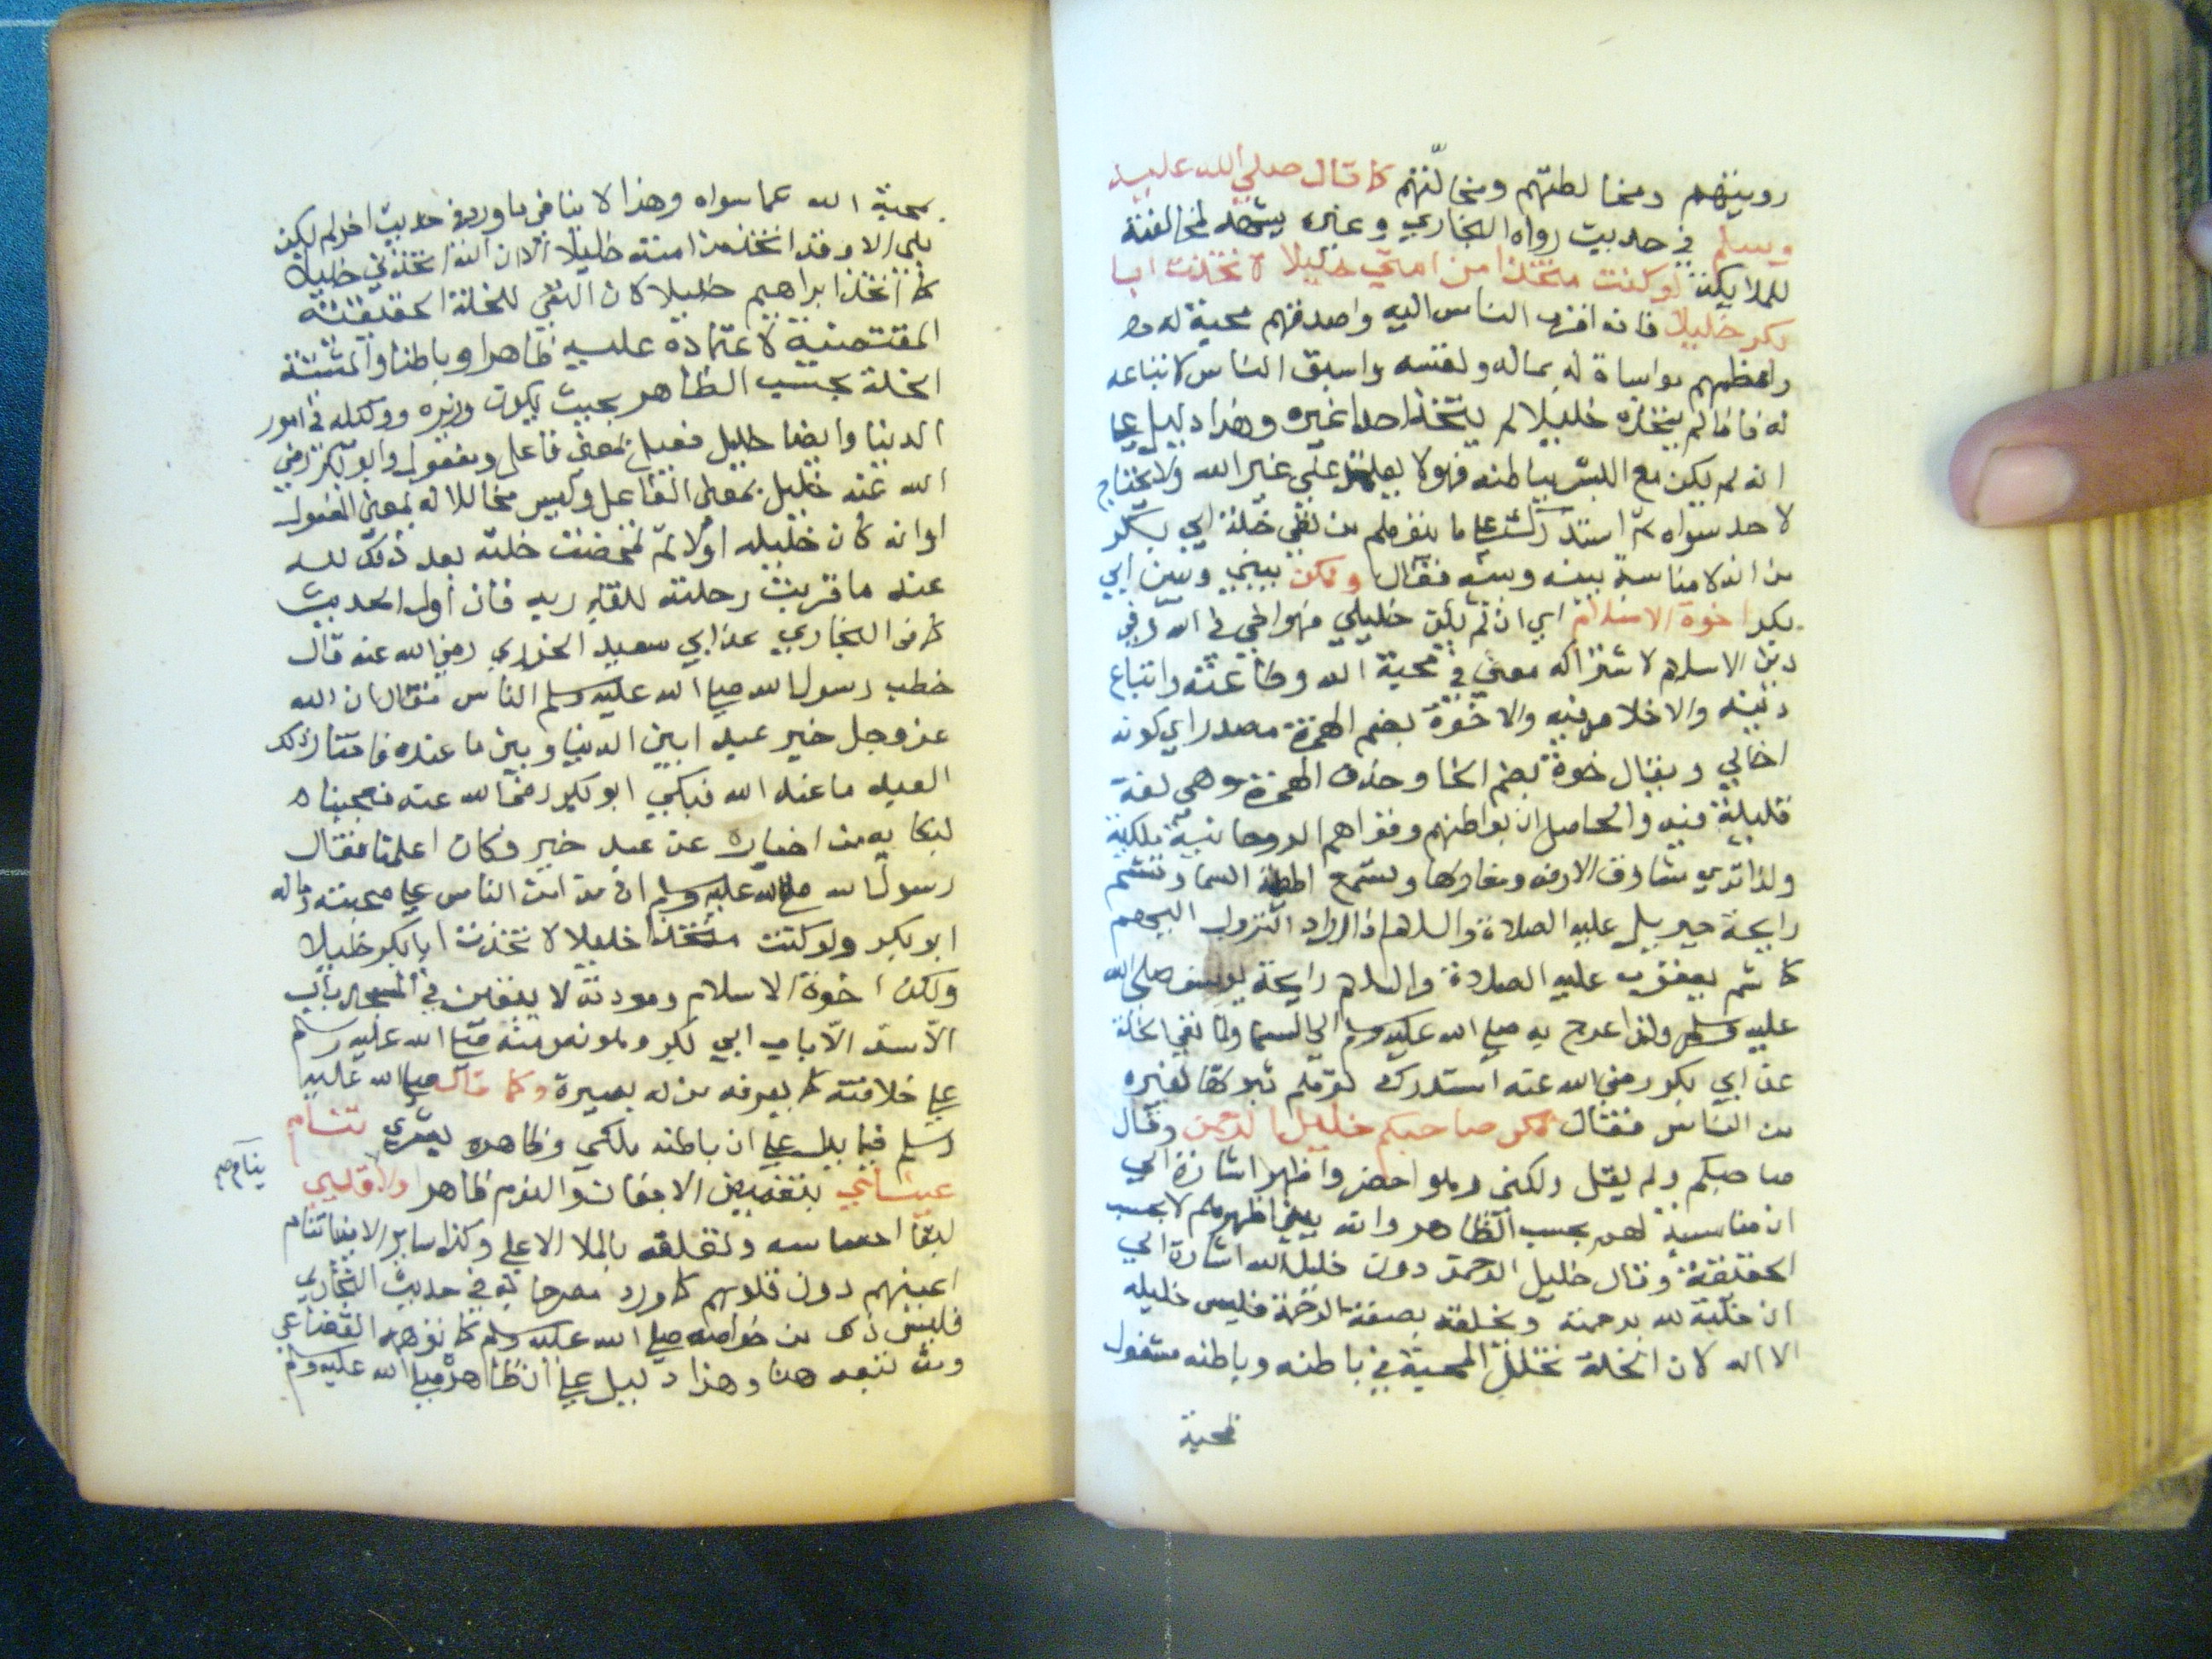 رويتهم ومخالطتهم ومخالتهم كما قال صلي الله عليه
وسلم في حديث رواه البخاري وغيره يشهد لمخالفته
للملايكة لو كنت متخذا من امتي خليلا لاتخذت ابا
بكر خليلا فانه اقرب الناس اليه واصدقهم محبة له
واعظمهم مواساة له بماله ونفسه واسبق الناس لاتباعه
له فاذا لم يتخذه خليلا لم يتخذ احدا غيره وهذا دليل علي
انه لم يكن مع البشر بباطنه فهو لا علي غير الله ولا يحتاج
لاحد سواه ثم استدرك علي ما من نفي خلة ابي بكر
من انه لا مناسبة بينه وبينه فقال ولكن بيني وبين ابي
بكر اخوة الاسلام اي ان لم يكن خليلي فهو اخي في الله وفي
دين الاسلام لاشتراكه معي في محبة الله وطاعته واتباع
دينه والاخلاص فيه والاخوة بضم الهمزة مصدر اي كونه
اخالي ويقال خوة بضم الخا وحذف الهمزة وهي لغة
قليلة فيه والحاصل ان بواطنهم وقواهم الروحانية ملكية
ولذا تري مشارق الارض ومغاربها وتسمع اطيط السما وتشم
رايحة جبريل عليه الصلاة والسلام اذا اراد النزول اليهم
كما شم يعقوب عليه الصلاة والسلام رايحة يوسف صلي الله
عليه وسلم ولذا عرج به صلي الله عليه وسلم الي السما ولما نفي الخلة
عن ابي بكر رضي الله عنه استدرك لغيره
من الناس فقال لكن صاحبكم خليل الرحمن وقال
صاحبكم ولم يقل ولكني وهو احضر واظهر اشارة الي
ان مناسبة لهم بحسب الظاهر وانه بين اظهرهم لا بحسب
الحقيقة وقال خليل الرحمن دون خليل الله اشارة الي
ان خلته لله برحمته وتخلقه بصفة الرحمة فليس خليله
الا اله لان الخلة تخلل المحبة في باطنه وباطنه مشغول
بمحبة
بمحبة الله عما سواه وهذا لا ينافي ما ورد في حديث اخر لم يكن
نبي الا وقد اتخذ من امته خليلا الا ان الله اتخذني خليلا
كما اتخذ ابراهيم خليلا لان النفي للخلة الحقيقية
المقتضية لاعتماده عليه ظاهرا وباطنا والمثبتة
الخلة بحسب الظاهر بحيث يكون وزيره ووكيله في امور
الدنيا وايضا خليل فعيل بمعني فاعل ومفعول وابو بكر رضي
الله عنه خليل بمعني الفاعل وليس مخاللا له بمعني المفعول
او انه كان خليله اولا ثم تمحضت خلته بعد ذلك لله
عند ما قربت رحلته للقاء ربه فان اول الحديث
كما في البخاري عن ابي سعيد الخدري رضي الله عنه قال
خطب رسول الله صلي الله عليه وسلم الناس فقال ان الله
عز وجل خير عبدا بين الدنيا وبين ما عنده فاختار ذلك
العبد ما عند الله فبكي ابو بكر رضي الله عنه فعجبنا
لبكايه من اخباره عن عبد خير وكان اعلمنا فقال
رسول الله صلي الله عليه وسلم ان من امن الناس علي صحبته وماله
ابو بكر ولو كنت متخذا خليلا لاتخذت ابا بكر خليلا
ولكن اخوة الاسلام ومودته لا يبقين في المسجد باب
الا سد الا باب ابي بكر وهو نص منه صلي الله عليه وسلم
علي خلافته كما يعرفه من له بصيرة وكما قال صلي الله عليه
وسلم فيما يدل علي ان باطنه ملكي وظاهره بشري تنام
عيناي بتغميض الاجفان والنوم ظاهرا ولا قلبي
ينام صح
لبقا احساسه وتعلقه بالملا الاعلي وكذا ساير الانبيا تنام
اعينهم دون قلوبهم كما ورد مصرحا به في حديث البخاري
فليس ذلك من خواصه صلي الله عليه وسلم كما توهمه القضاعي
ومن تبعه هنا وهذا دليل علي ان ظاهره صلي الله عليه وسلم